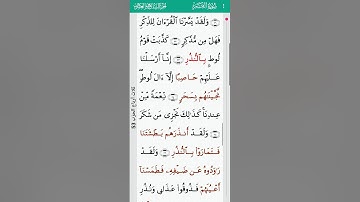 وَلَقَدْ يَسَّرْنَا ٱلْقُرْءَانَ لِلذِّكْرِ
فَهَلْ مِن مُّدَّكِرٍ ۝ كَذَّبَتْ قَوْمُ
لُوطٍۭ بِٱلنُّذُرِ ۝ إِنَّآ أَرْسَلْنَا
عَلَيْهِمْ حَاصِبًا إِلَّآ ءَالَ لُوطٍۖ
نَّجَّيْنَٰهُم بِسَحَرٍ ۝ نِّعْمَةً مِّنْ
عِندِنَاۚ كَذَٰلِكَ نَجْزِى مَن شَكَرَ
۝ وَلَقَدْ أَنذَرَهُم بَطْشَتَنَا
فَتَمَارَوْا۟ بِٱلنُّذُرِ ۝ وَلَقَدْ
رَٰوَدُوهُ عَن ضَيْفِهِۦ فَطَمَسْنَآ
أَعْيُنَهُمْ فَذُوقُوا۟ عَذَابِى وَنُذُرِ